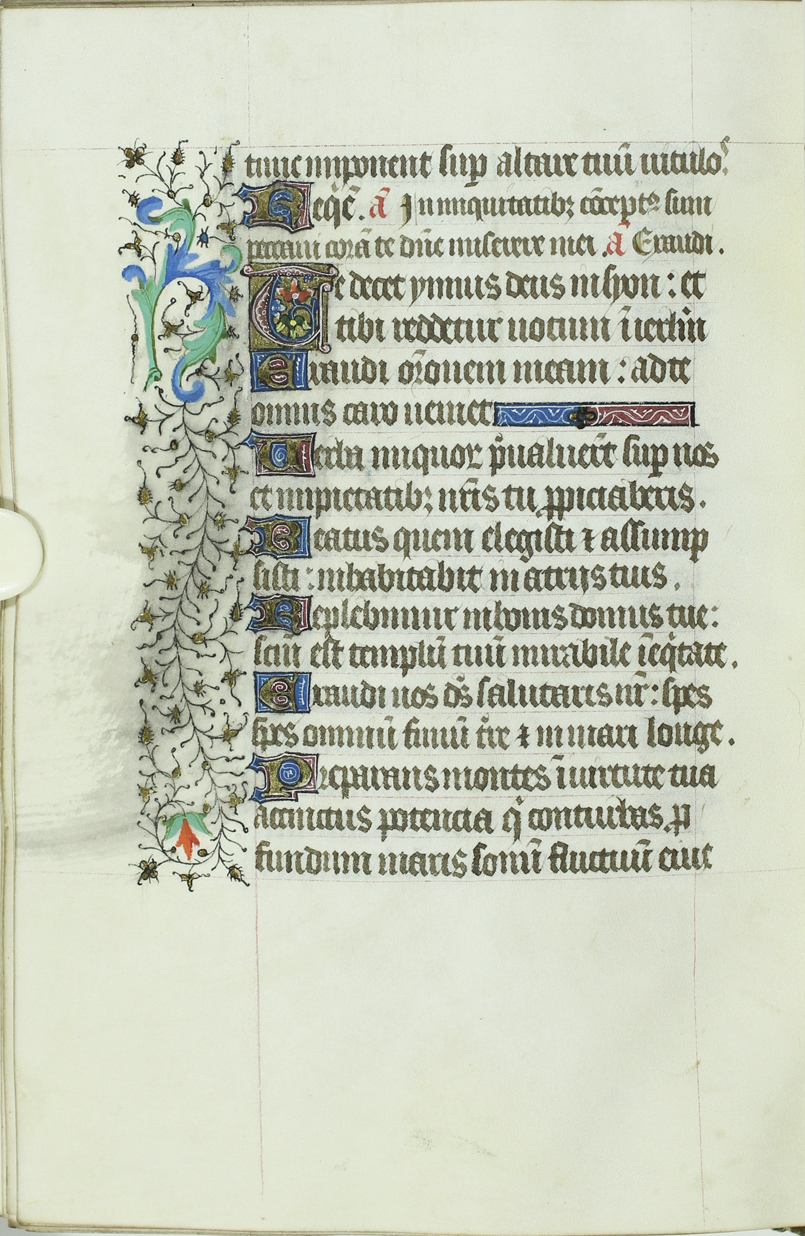 tunc inponent sup altare tuū uitulos.
Reqiē. ā In iniquitatibz cōcept9 sum
peccaui corā te dn̄e miserere mei . ā Eraudi .
Te decet ympnus deus in syon : et
tibi reddetur uotum ī ierl̄m
Exaudi or̄onem meam : ad te
omnis caro ueniet
Uerba iniquor p̄ualuer̄t sup nos
et inpietatibz nr̄is tu ꝓpiciaberis .
Beatus quem elegisti ⁊ assump
sisti : inhabitabit in atrijs tuis .
Replebimur in bonis domus tue :
scm̄ est templū tuū mirabile ī eq̄tate .
Exaudi nos ds̄ salutaris nr̄ : spes
spes omniū finiū tr̄e ⁊ in mari longe .
Preparans montes ī uirtute tua
accinctus potencia q̄ conturbas ꝓ
fundum maris sonū fluctuū eius